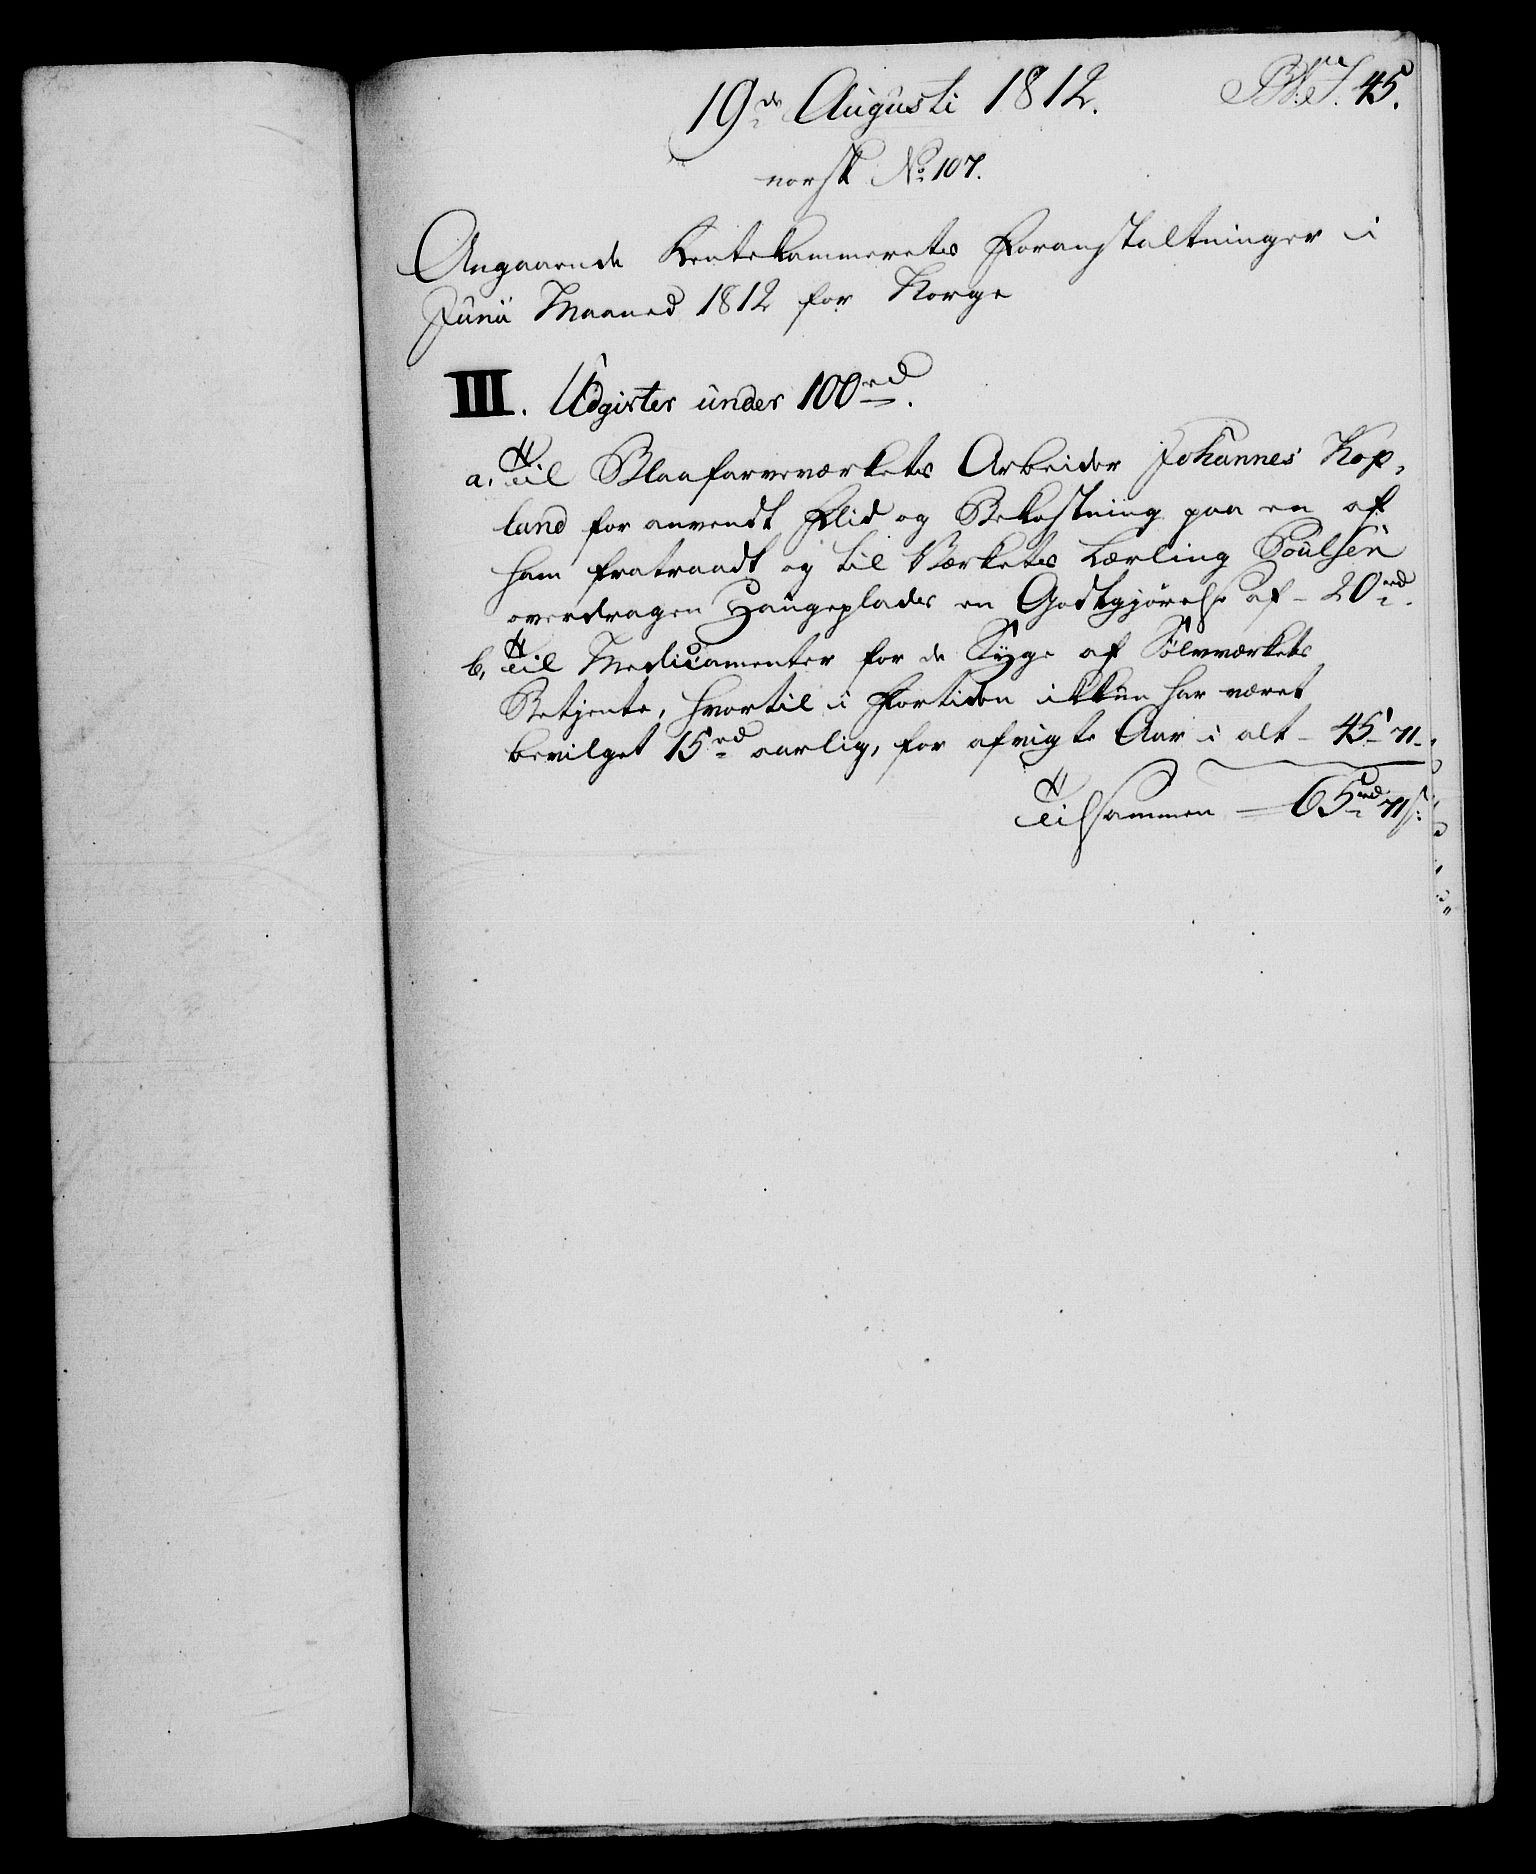 19de Augusti 1812.
45.
norsk No 107.
Angaaende Rentekammerets Foranstaltninger i
Junii Maaned 1812 for Norge
III. Udgivter under 100rd.
a, Til Blaafarveværkets Arbeider Johannes Kop-
land for anvendt Flid og Bekostning paa en af
ham fratraadt og til Værkets Lærling Poulsen
overdragen Haugeplads en Godtgjørelse af - 20rd.
b, Til Medicamenter for de Syge af Sølvværkets
Betjente, hvortil i Fortiden ikkun har været
bevilget 15rd aarlig, for afvigte Aar i alt - 45 - 71 -
Tilsammen — 65rd 71s: